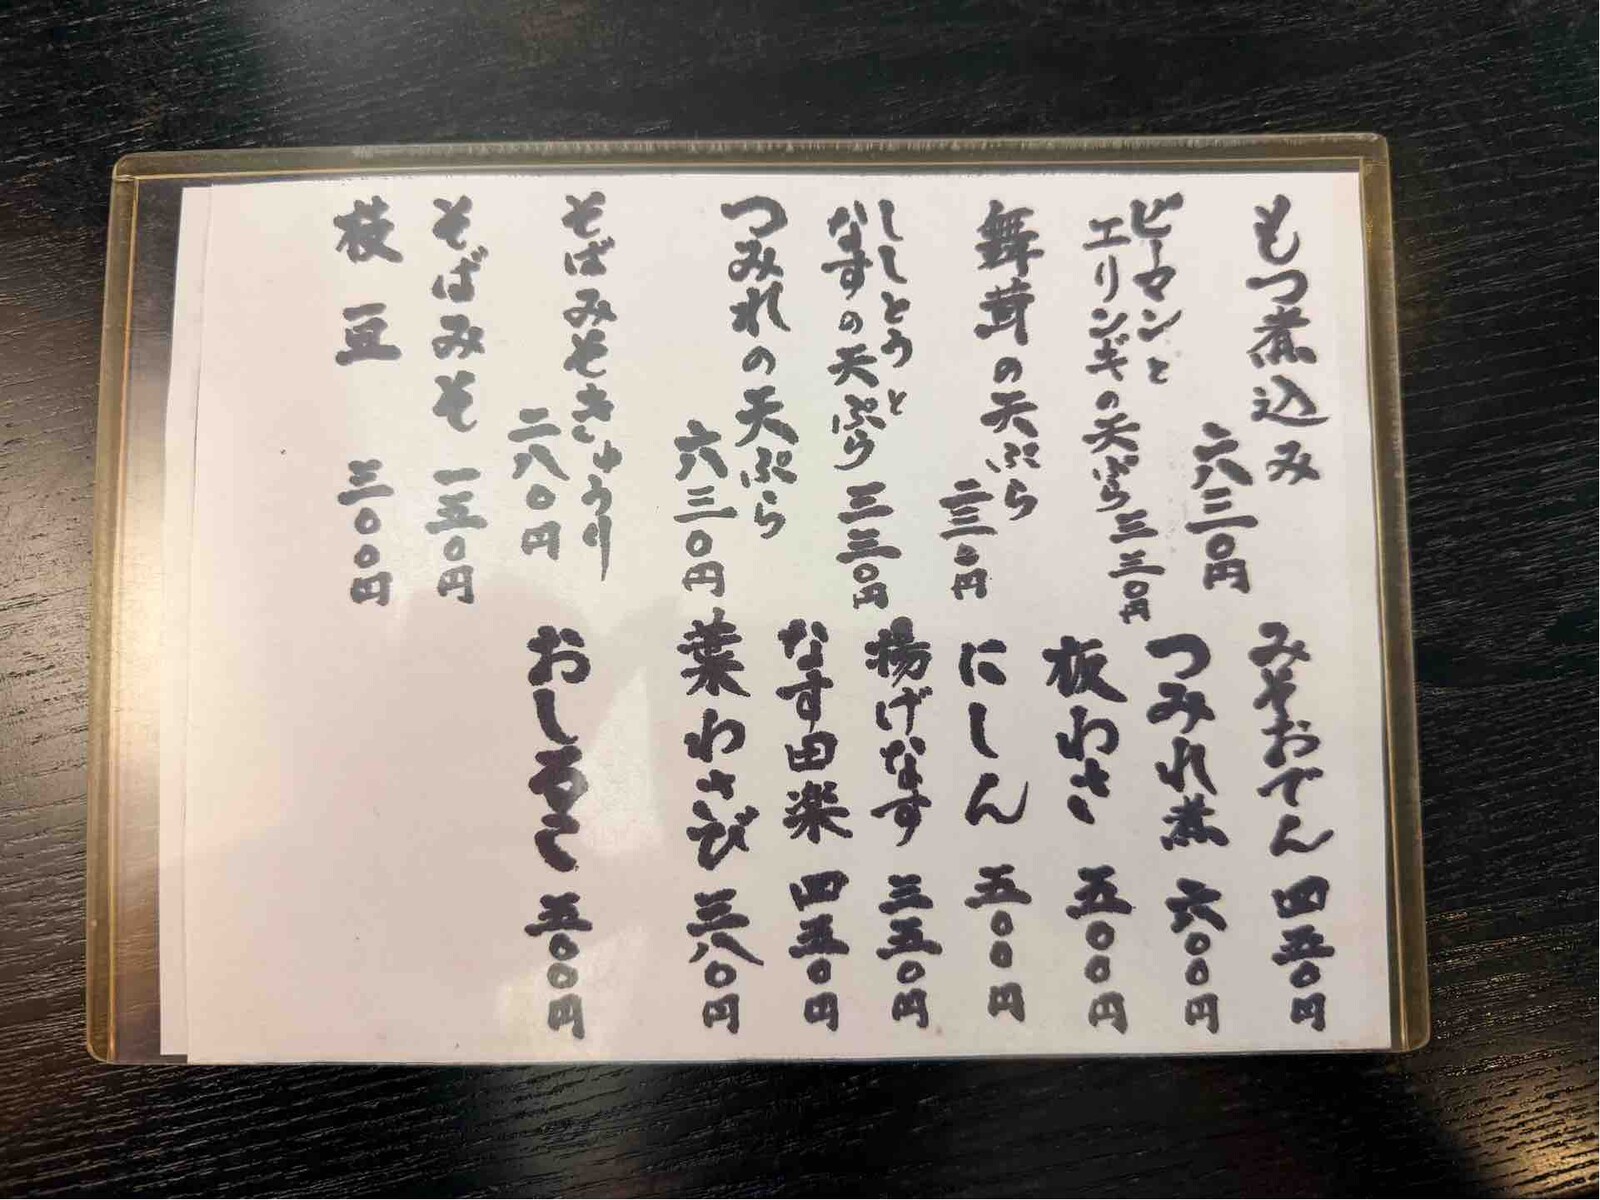 もつ煮込み
六三〇円
ピーマンと
エリンギの天ぷら 三三〇円
舞茸の天ぷら
二三〇円
ししとうと
なすの天ぷら 三三〇円
つみれの天ぷら
六三〇円
そばみそきゅうり
二八〇円
そばみそ 一五〇円
枝豆 三〇〇円
みそおでん 四五〇円
つみれ煮 六〇〇円
板わさ 五〇〇円
にしん 五〇〇円
揚げなす 三五〇円
なす田楽 四五〇円
葉わさび 三八〇円
おしるこ 五〇〇円